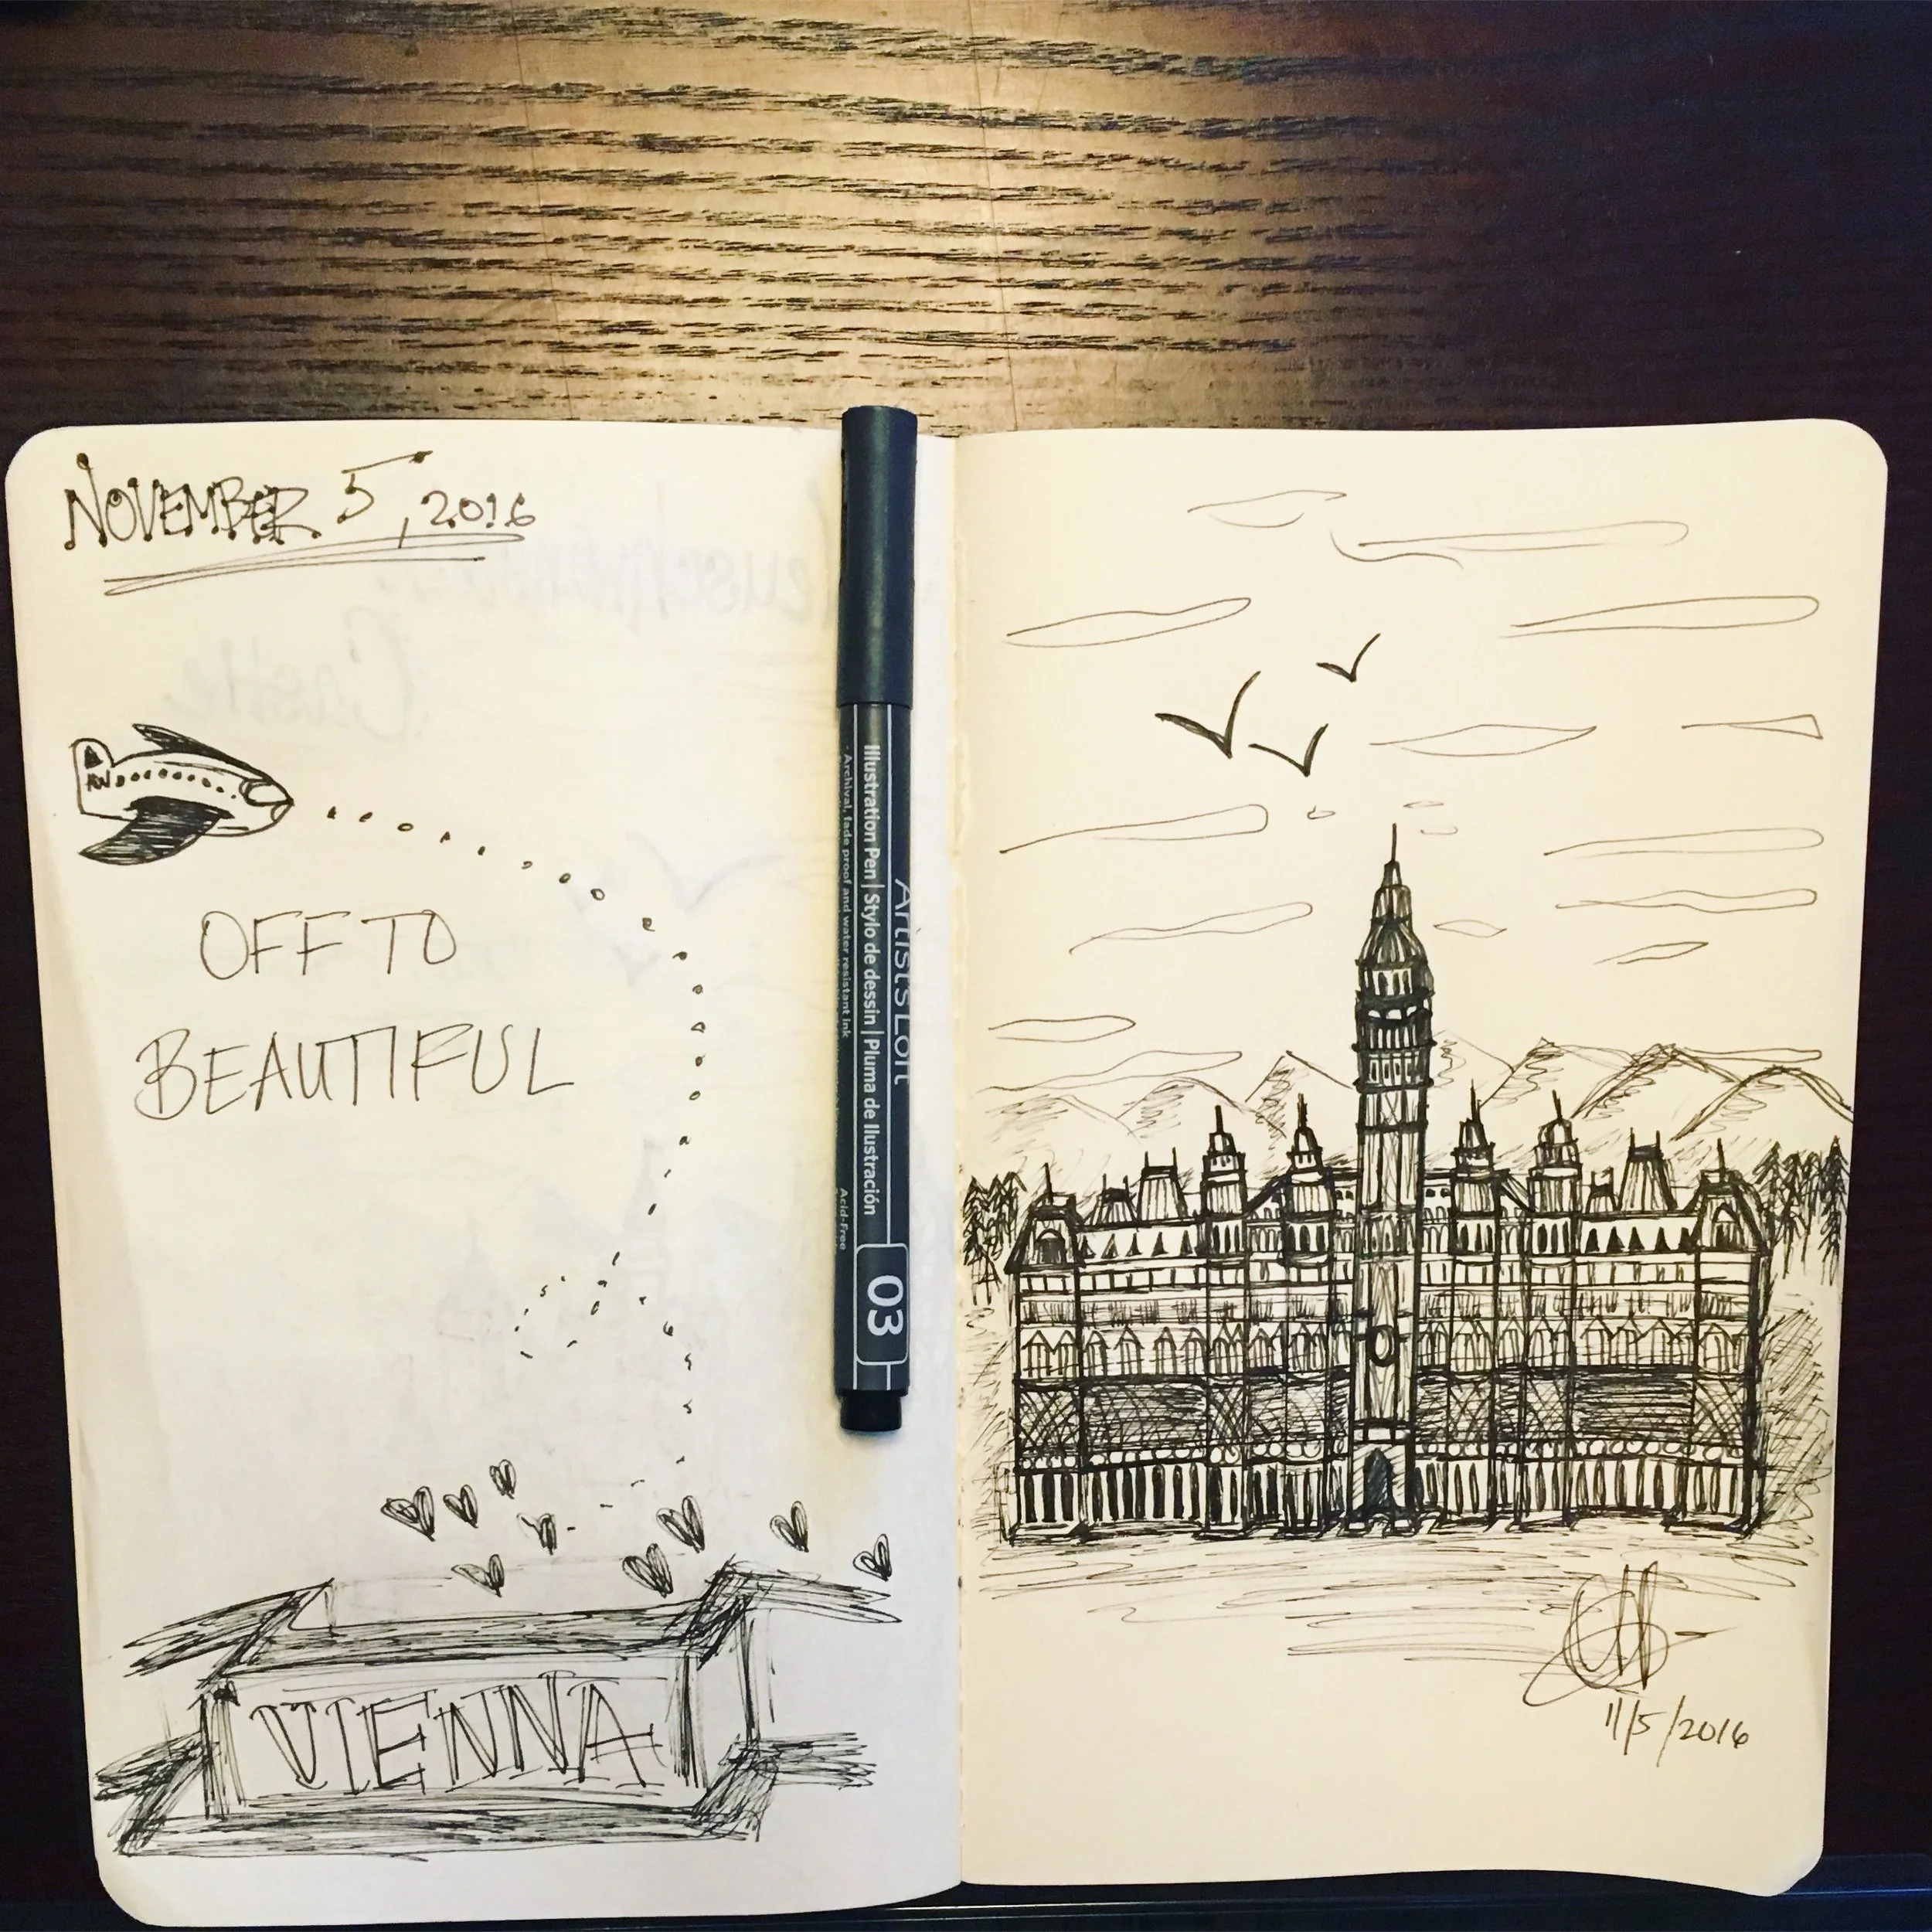 NOVEMBER 5, 2016
OFF TO
BEAUTIFUL
VIENNA
ArtistsLoft
Illustration Pen | Stylo de dessin | Pluma de Ilustración
· Archival, fade proof and water resistant ink
Acid-Free
03
Castle
11/5/2016